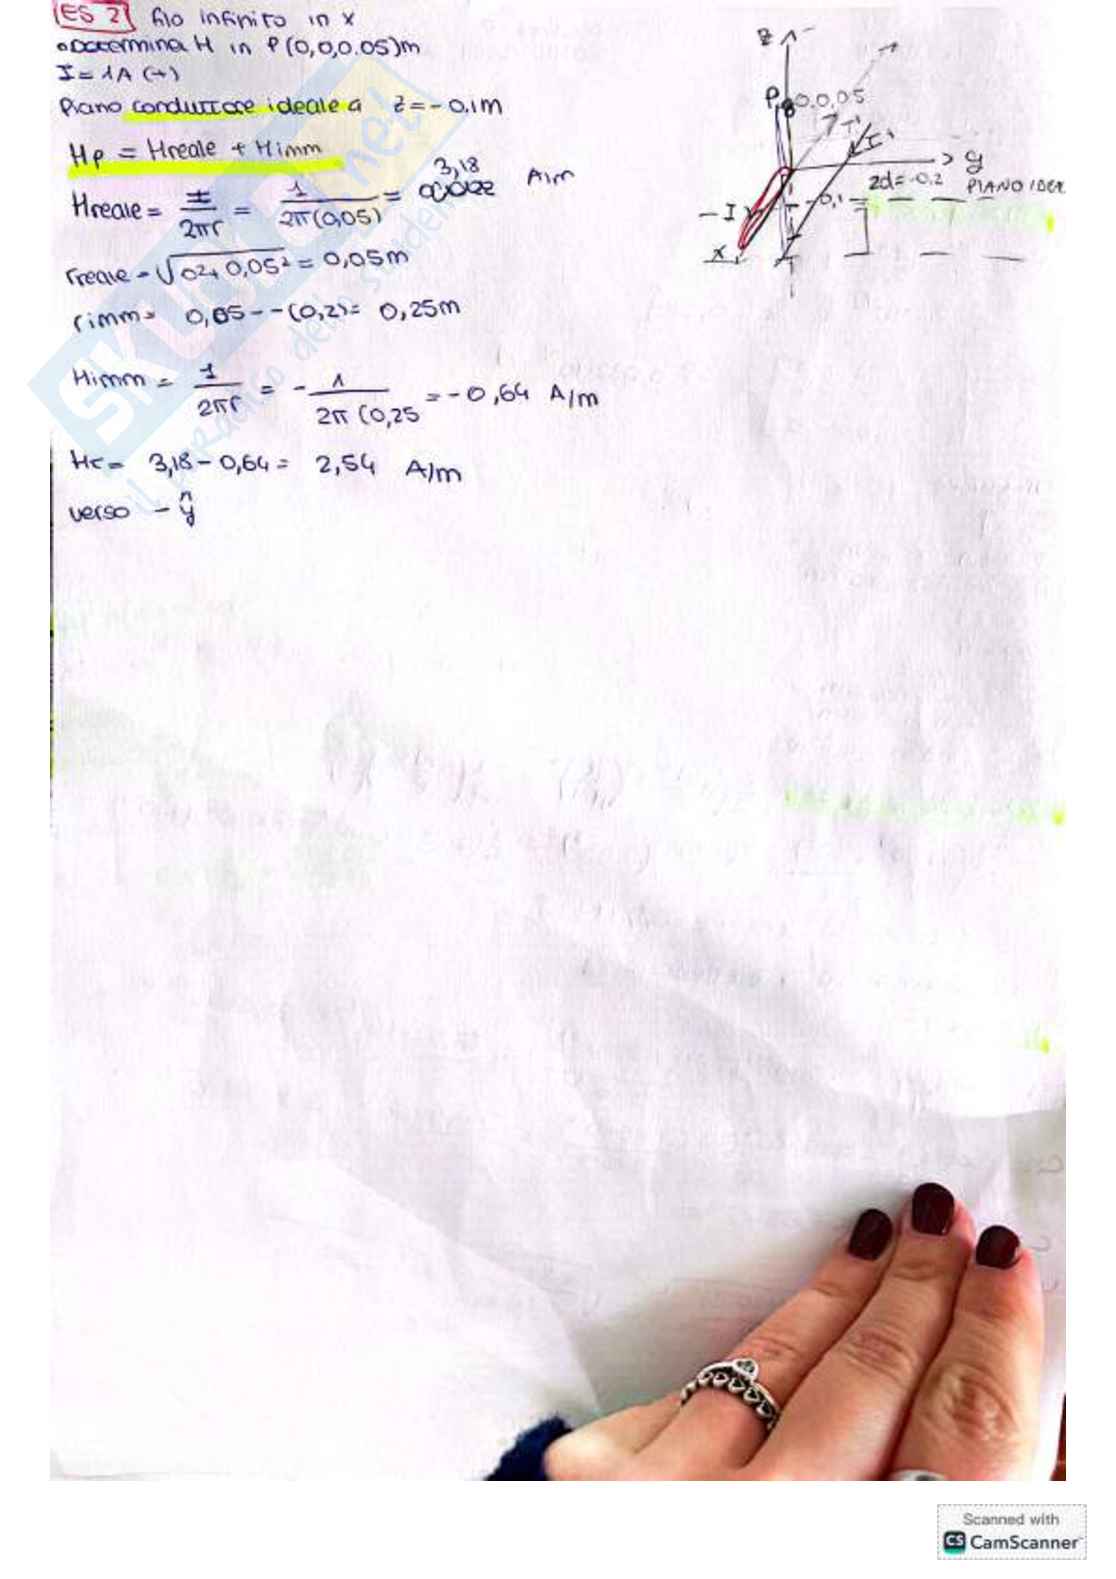 ES 2) filo infinito in x
• Determina H in P(0,0,0.05)m
I = 1A (+)
Piano conduttore ideale a z = - 0.1m
Hp = Hreale + Himm
Hreale = I/2πr = 1/2π(0,05) = 3,18 A/m
rreale = √0²+0,05² = 0,05m
rimm = 0,05 - -(0,2) = 0,25m
Himm = 1/2πr = - 1/2π(0,25 = -0,64 A/m
Ht = 3,18 - 0,64 = 2,54 A/m
verso - ŷ
z
P 0,0,05
I'
y
2d = -0.2 PIANO IDER
-I
-0,1
x
SKUOLA.net
il paradiso dello studente
Scanned with
CS CamScanner